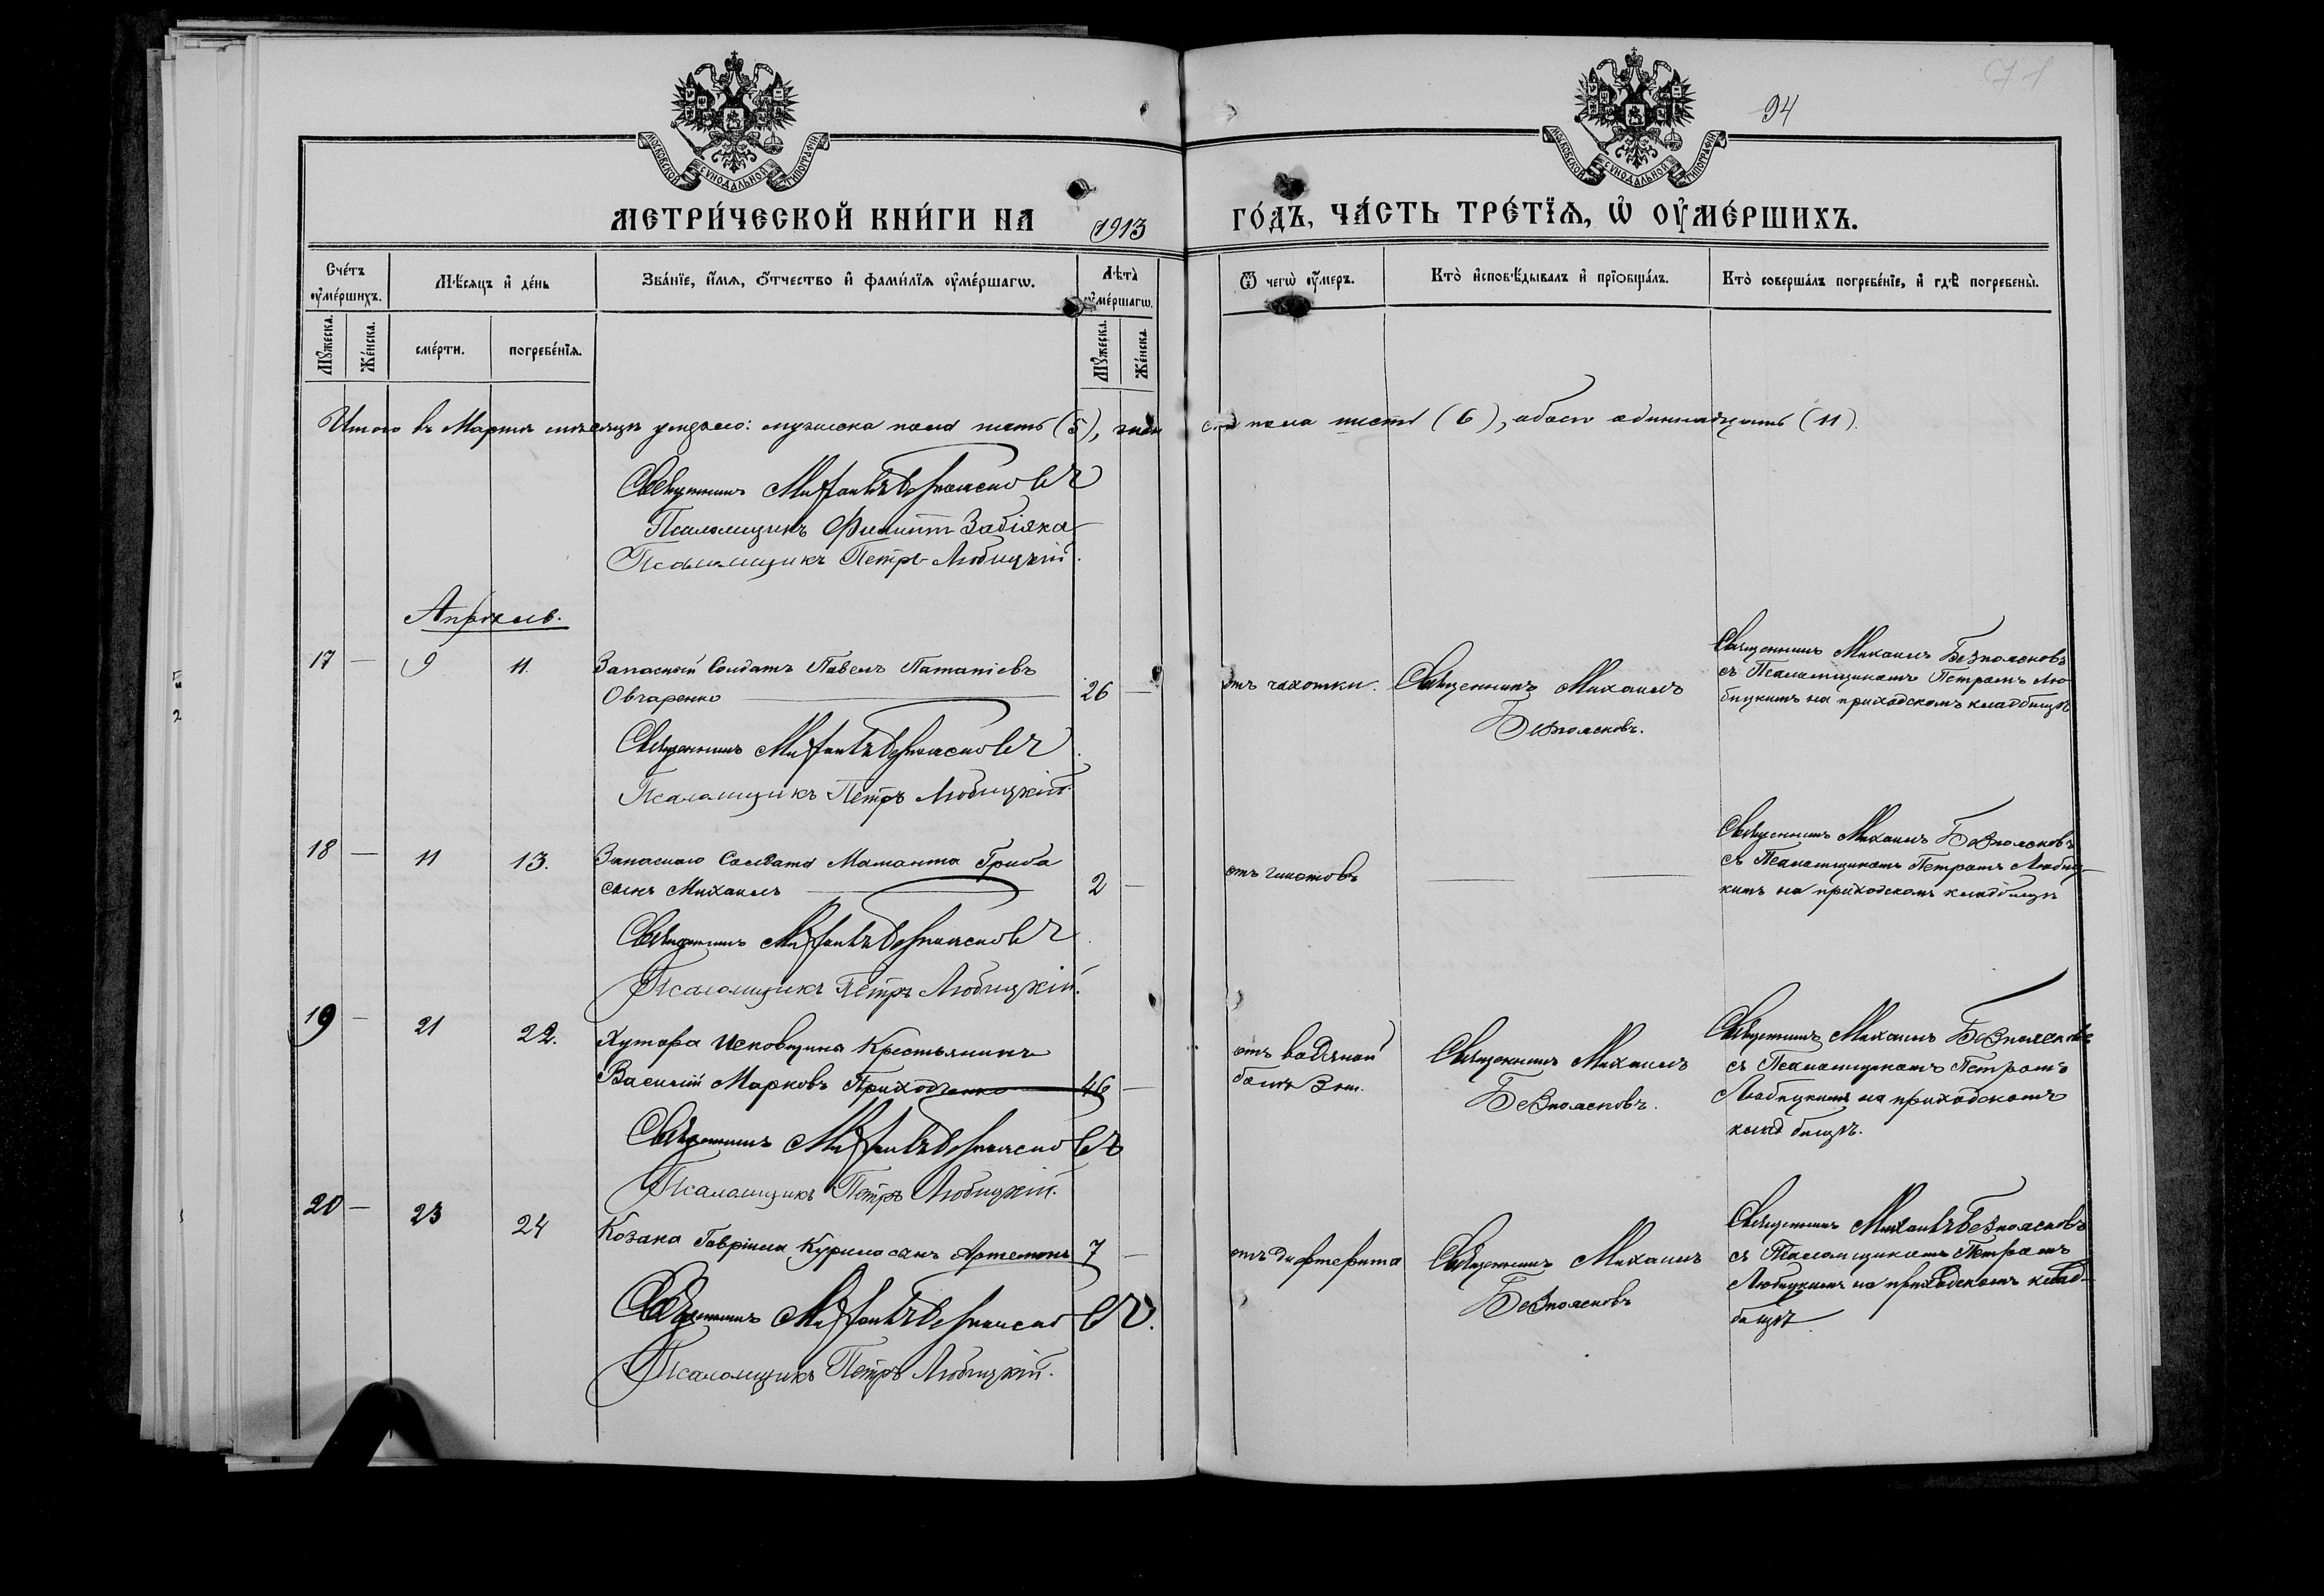 71
94
МОСКОВСКОЙ СУНОДАЛЬНОЙ ТИПОГРАФІИ
МОСКОВСКОЙ СУНОДАЛЬНОЙ ТИПОГРАФІИ
МЕТРИ́ЧЕСКОЙ КНИ́ГИ НА 1913 ГО́ДЪ, ЧА́СТЬ ТРЕ́ТЇѦ, Ѡ҆ ОУ҆МЕ́РШИХЪ.
Сче́тъ оу҆ме́ршихъ.
Мѣ́сѧцъ и҆ де́нь
Зва́нїе, и҆́мѧ, ѻ҆́тчество и҆ фами́лїѧ оу҆ме́ршагѡ.
Лѣ́та оу҆ме́ршагѡ.
Ѿ чегѡ̀ оу҆́меръ.
Кто̀ и҆сповѣ́дывалъ и҆ прїѻбща́лъ.
Кто̀ соверша́лъ погребе́нїе, и҆ гдѣ̀ погребены̀.
Мꙋ́жеска.
Же́нска.
сме́рти.
погребе́нїѧ.
Мꙋ́жеска.
Же́нска.
Итого въ Мартѣ мѣсяцѣ умерло: мужеска пола пять (5), женска пола шесть (6), обоего одиннадцать (11).
Священникъ Михаилъ Безпоясновъ
Псаломщикъ Филиппъ Забіяка
Псаломщикъ Петръ Любицкій.
Апрѣль.
17 — 9 11. Запасный Солдатъ Павелъ Патапіевъ
Овчаренко 26 —
отъ чахотки.
Священникъ Михаилъ
Безпоясновъ.
Священникъ Михаилъ Безпоясновъ
съ Псаломщикомъ Петромъ Лю-
бицкимъ на приходскомъ кладбищѣ
Священникъ Михаилъ Безпоясновъ
Псаломщикъ Петръ Любицкій.
18 — 11 13. Запаснаго Солдата Маманта Гриба
сынъ Михаилъ 2 —
отъ глистовъ — —
Священникъ Михаилъ Безпоясновъ
съ Псаломщикомъ Петромъ Любиц-
кимъ на приходскомъ кладбищѣ
Священникъ Михаилъ Безпоясновъ
Псаломщикъ Петръ Любицкій.
19 — 21 22. Хутора Исковщина Крестьянинъ
Василій Марковъ Приходченко 46 —
отъ водяной
болѣзни.
Священникъ Михаилъ
Безпоясновъ.
Священникъ Михаилъ Безпоясновъ
съ Псаломщикомъ Петромъ
Любицкимъ на приходскомъ
кладбищѣ.
Священникъ Михаилъ Безпоясновъ
Псаломщикъ Петръ Любицкій.
20 — 23 24 Козака Гавріила Курила сынъ Артемонъ 7 —
отъ дифтерита
Священникъ Михаилъ
Безпоясновъ
Священникъ Михаилъ Безпоясновъ
съ Псаломщикомъ Петромъ
Любицкимъ на приходскомъ клад-
бищѣ
Священникъ Михаилъ Безпоясновъ.
Псаломщикъ Петръ Любицкій.